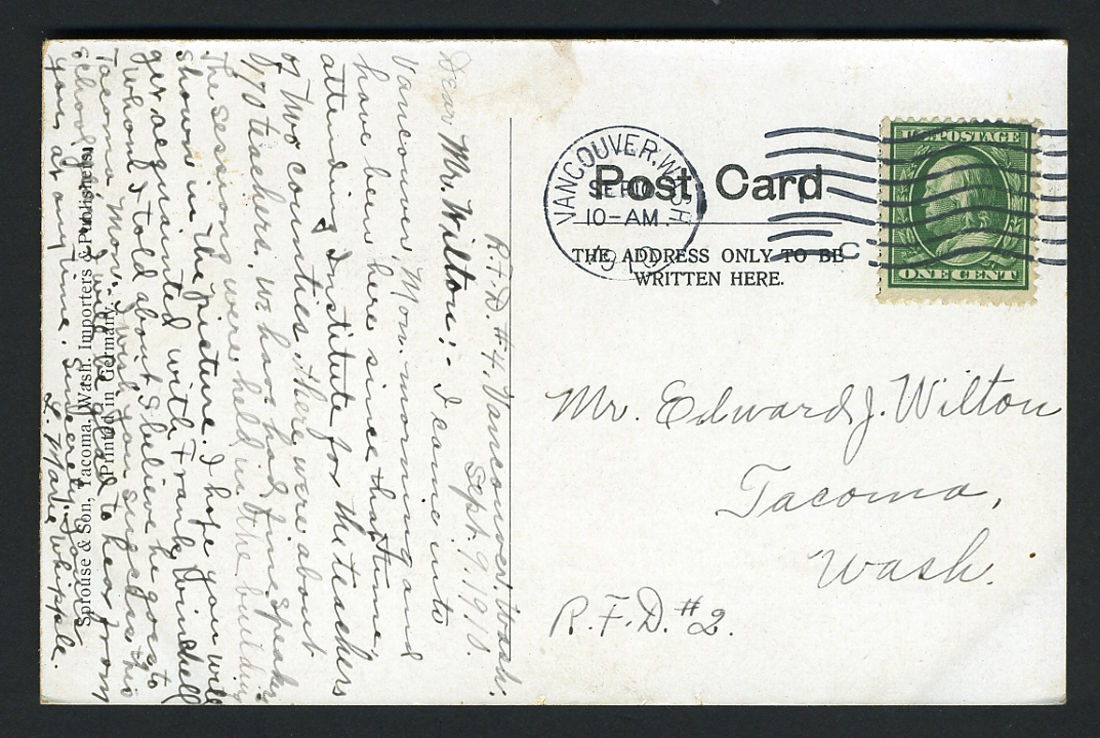 R.F.D. #4. Vancouver. Wash.
Sept. 9. 1910.
Dear Mr. Wilton:- I came into
Vancouver, Mon. morning and
have been here since that time,
attending Institute for the teachers
of two counties. There were about
170 teachers. We have had fine speakers
The sessions were held in the building
shown in the picture. I hope you will
get acquainted with Frank Winchell
whom I told about I believe he goes to
Tacoma Mon. I wish you success this
school year I will be glad to hear from
you at any time. Sincerely.
L. Marie Whipple.
Sprouse & Son, Tacoma, Wash. Importers & Publishers.
(Printed in Germany.)
Post Card
THE ADDRESS ONLY TO BE
WRITTEN HERE.
VANCOUVER. WASH
SEP
10-AM.
1910
C
U.S. POSTAGE
ONE CENT
Mr. Edward J. Wilton
Tacoma,
Wash.
R.F.D. #2.